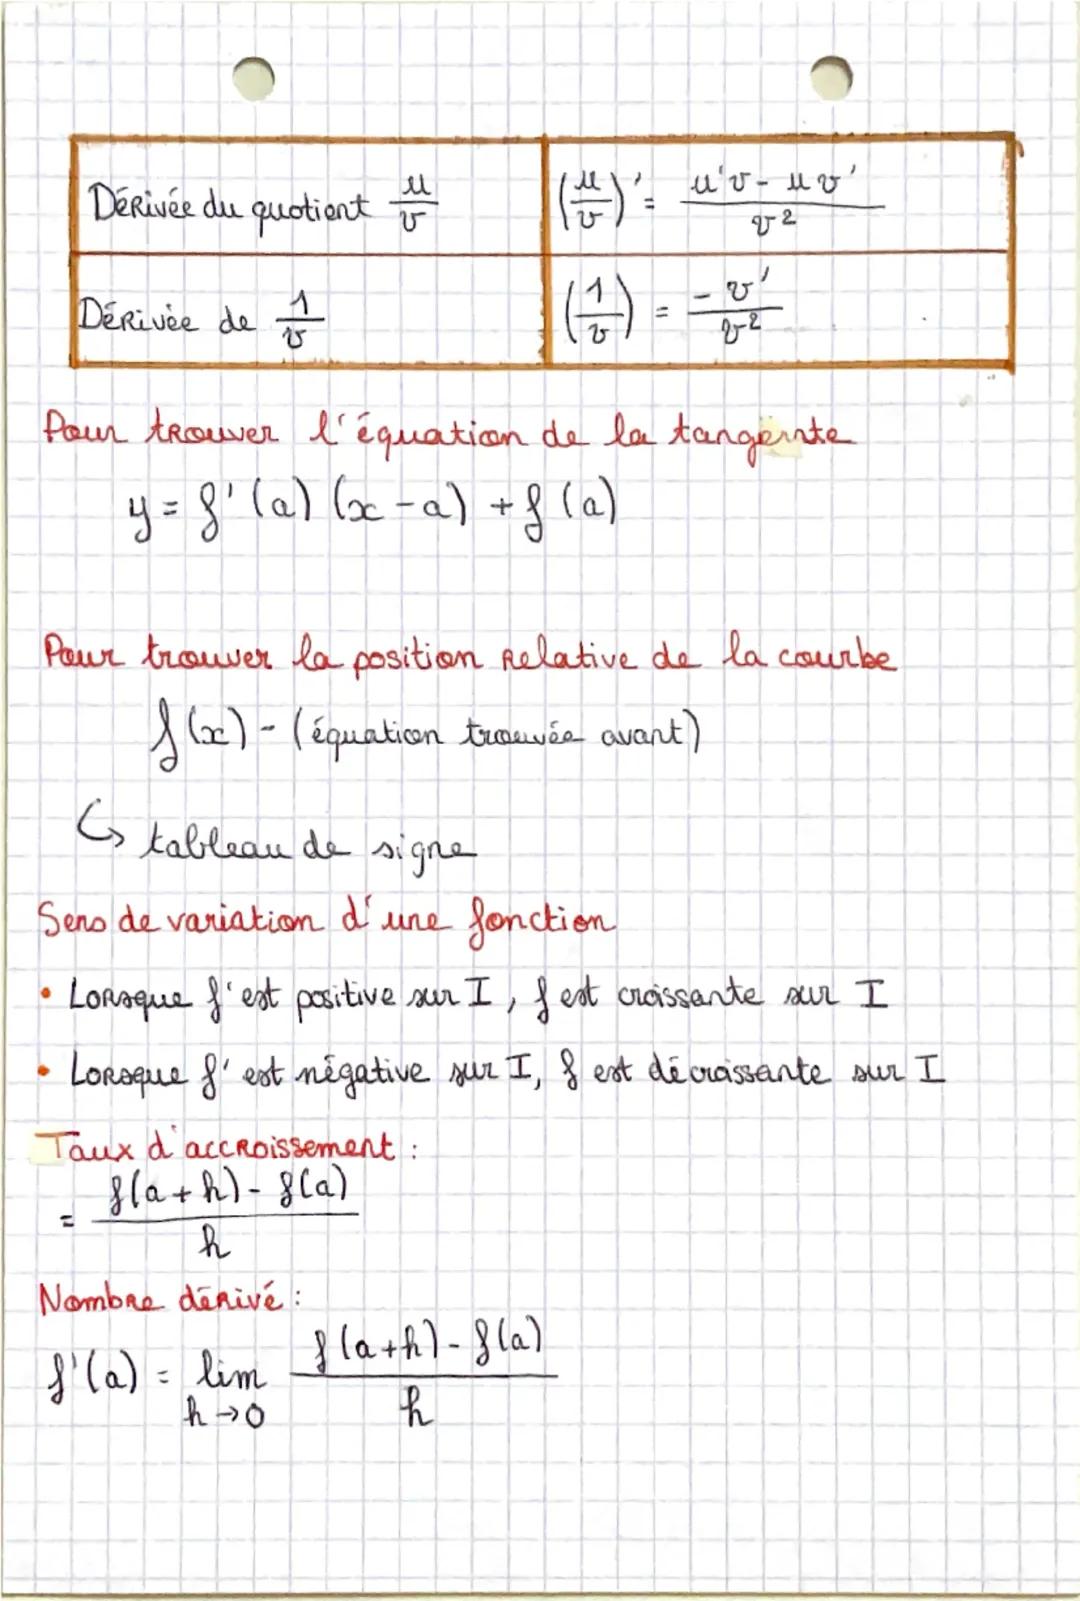 Dérivée du quotient u/v (u/v)' = (u'v - uv')/v²
Dérivée de 1/v (1/v) = -v'/v²
Pour trouver l'équation de la tangente
y = f'(a) (x-a) + f(a)
Pour trouver la position relative de la courbe
f(x) - (équation trouvée avant)
↳ tableau de signe
Sens de variation d'une fonction
• Lorsque f' est positive sur I, f est croissante sur I
• Lorsque f' est négative sur I, f est décroissante sur I
Taux d'accroissement :
= (f(a+h) - f(a))/h
Nombre dérivé :
f'(a) = lim h→0 (f(a+h) - f(a))/h